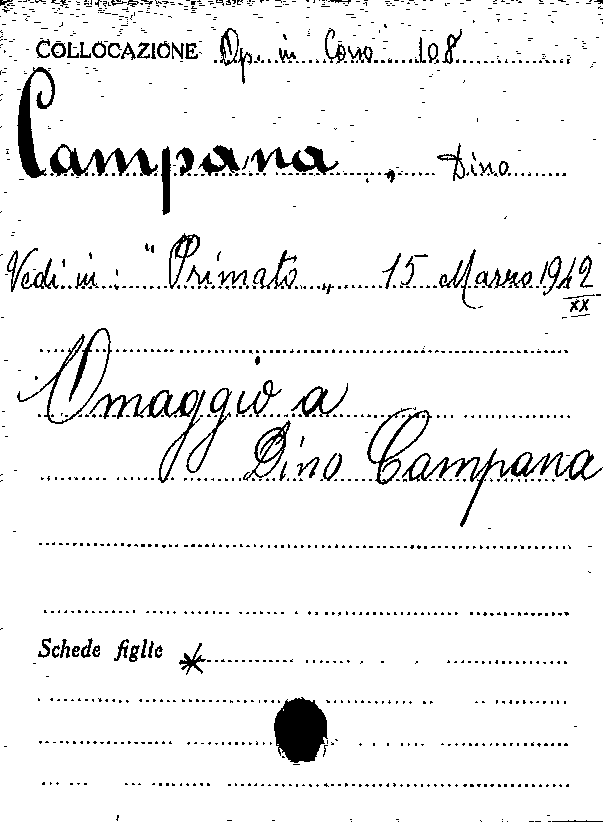 COLLOCAZIONE Op. in Corso 108
Campana, Dino
Vedi in: "Primato„ 15 Marzo 1942
XX
Omaggio a
Dino Campana
Schede figlie *